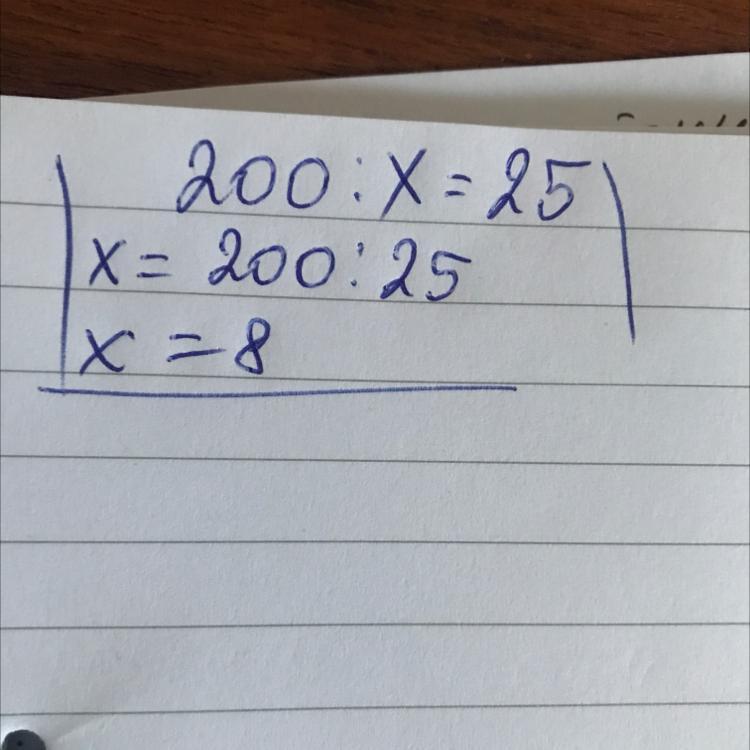 200 : X = 25
x = 200 : 25
x = 8